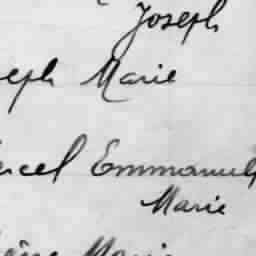 Joseph
eph Marie
rcel Emmanuel
Marie
Marie